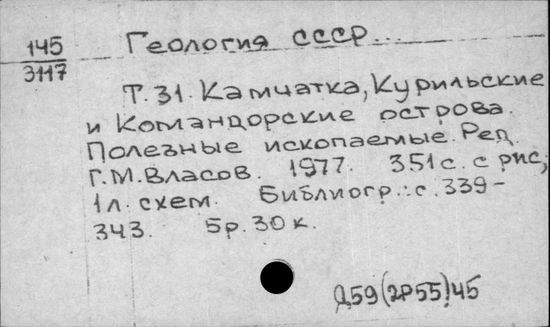 145
3117
Геология СССР...
Т. 31. Камчатка, Курильские
и Командорские острова.
Полезные ископаемые. Ред.
Г.М. Власов. 1977. 351 с. с рис,
1 л. схем. Библиогр.: с. 339-
343. 5р. 30 к.
Д59(2Р55)45